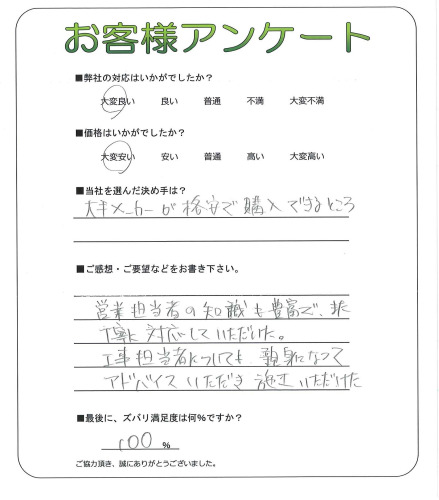 お客様アンケート
■弊社の対応はいかがでしたか?
大変良い 良い 普通 不満 大変不満
■価格はいかがでしたか?
大変安い 安い 普通 高い 大変高い
■当社を選んだ決め手は?
大手メーカーが格安で購入できるところ
■ご感想・ご要望などをお書き下さい。
営業担当者の知識も豊富で、また
丁寧に対応していただけた。
工事担当者についても、親身になって
アドバイスいただき施工いただけた
■最後に、ズバリ満足度は何%ですか?
100 %
ご協力頂き、誠にありがとうございました。